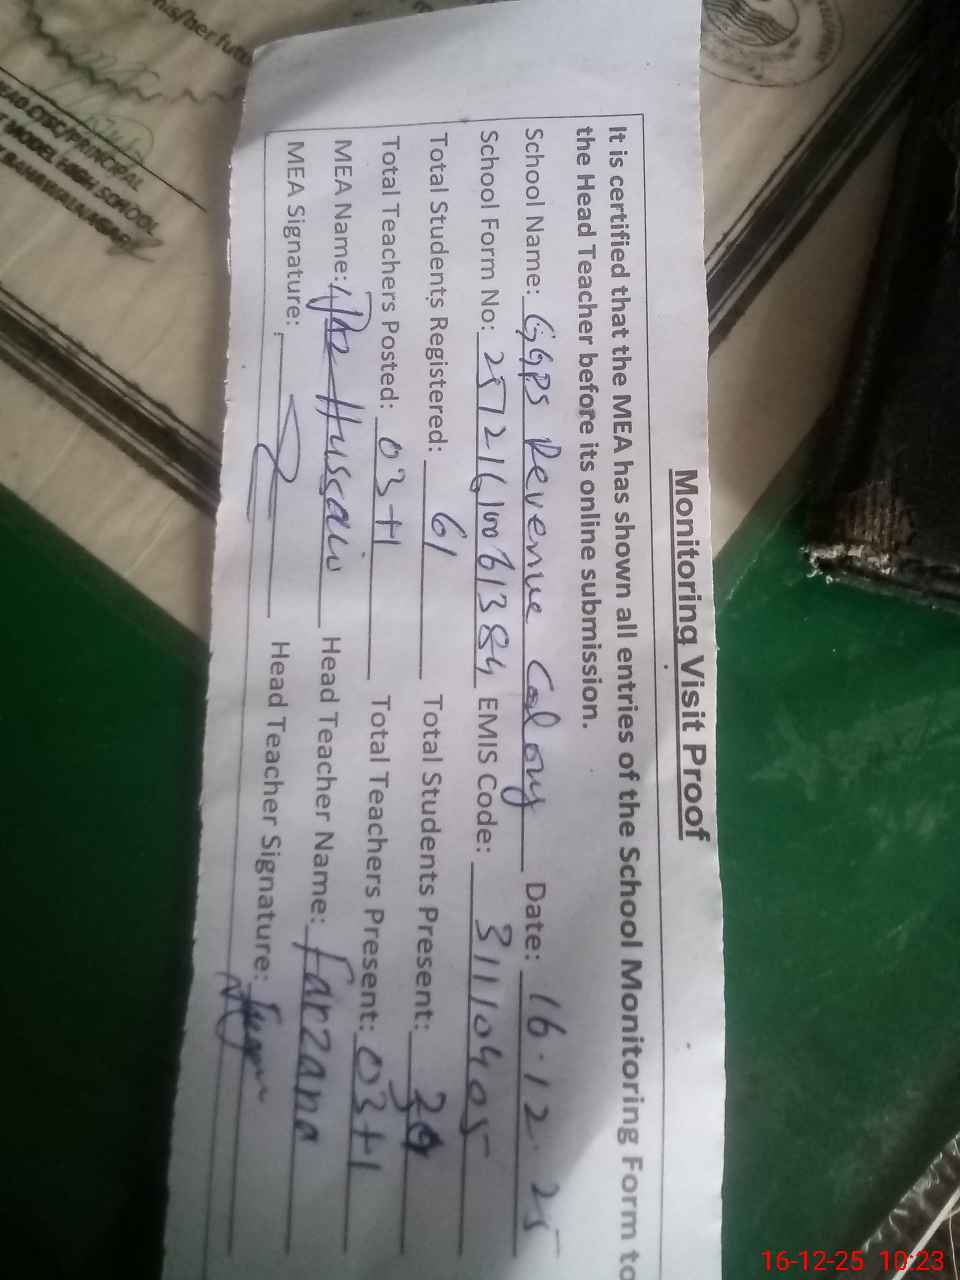 Monitoring Visit Proof
It is certified that the MEA has shown all entries of the School Monitoring Form to
the Head Teacher before its online submission.
School Name: GGPS Revenue Colony Date: 16.12.25
School Form No: EMIS Code: 31110405
Total Students Registered: 61 Total Students Present:
Total Teachers Posted: 03+1 Total Teachers Present: 03+1
MEA Name: Hussain Head Teacher Name: Farzana
MEA Signature: Head Teacher Signature:
his/her
CTSC/PRINCIPAL
MODEL HIGH SCHOOL
BAHAWALNAGAR
16-12-25 10:23